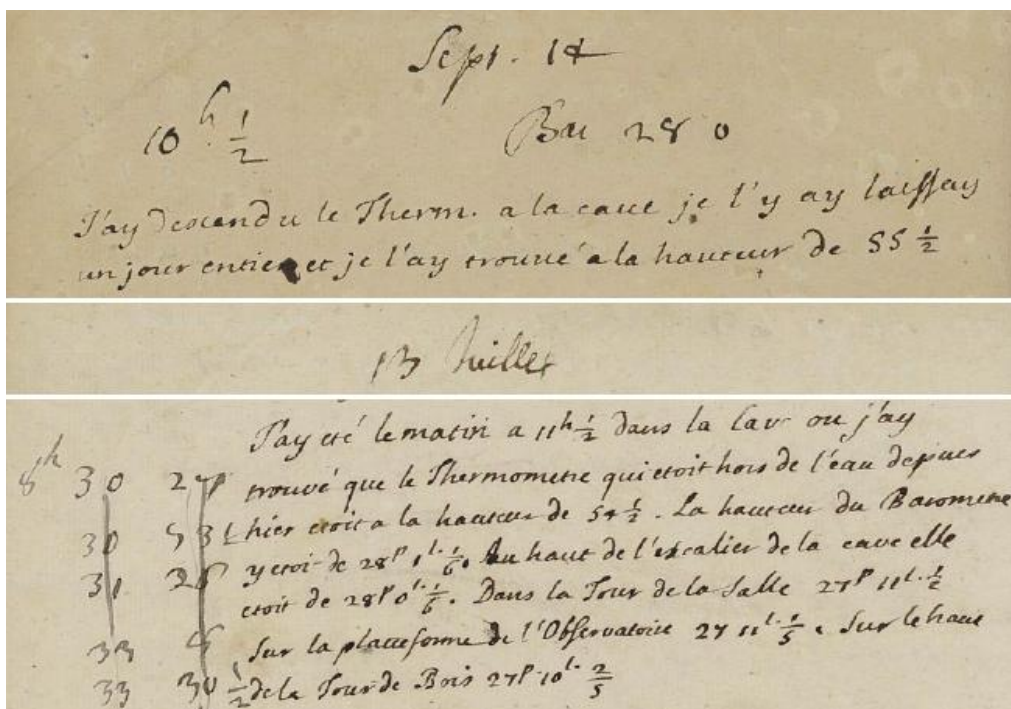 Sept. 14
10 h 1/2 Bar 28 0
J'ay descendu le Therm. a la cave je l'y ay laissay
un jour entier et je l'ay trouvé a la hauteur de 55 1/2
13 Juillet
J'ay eté le matin a 11h 1/2 dans la Cav ou j'ay
8h 30 27 trouvé que le Thermometre qui etoit hors de l'eau depues
30 53 hier etoit a la hauteur de 54 1/2. La hauteur du Barometre
31 28 y etoi de 28p 1l. 1/6. Au haut de l'escalier de la cave elle
etoit de 28p 0l. 1/6. Dans la Tour de la Salle 27p 11l. 1/2
33 Sur la platteforme de l'Observatoire 27 11l. 1/5. Sur le haut
33 30 1/2 de la Tour de Bois 27p 10l. 2/5